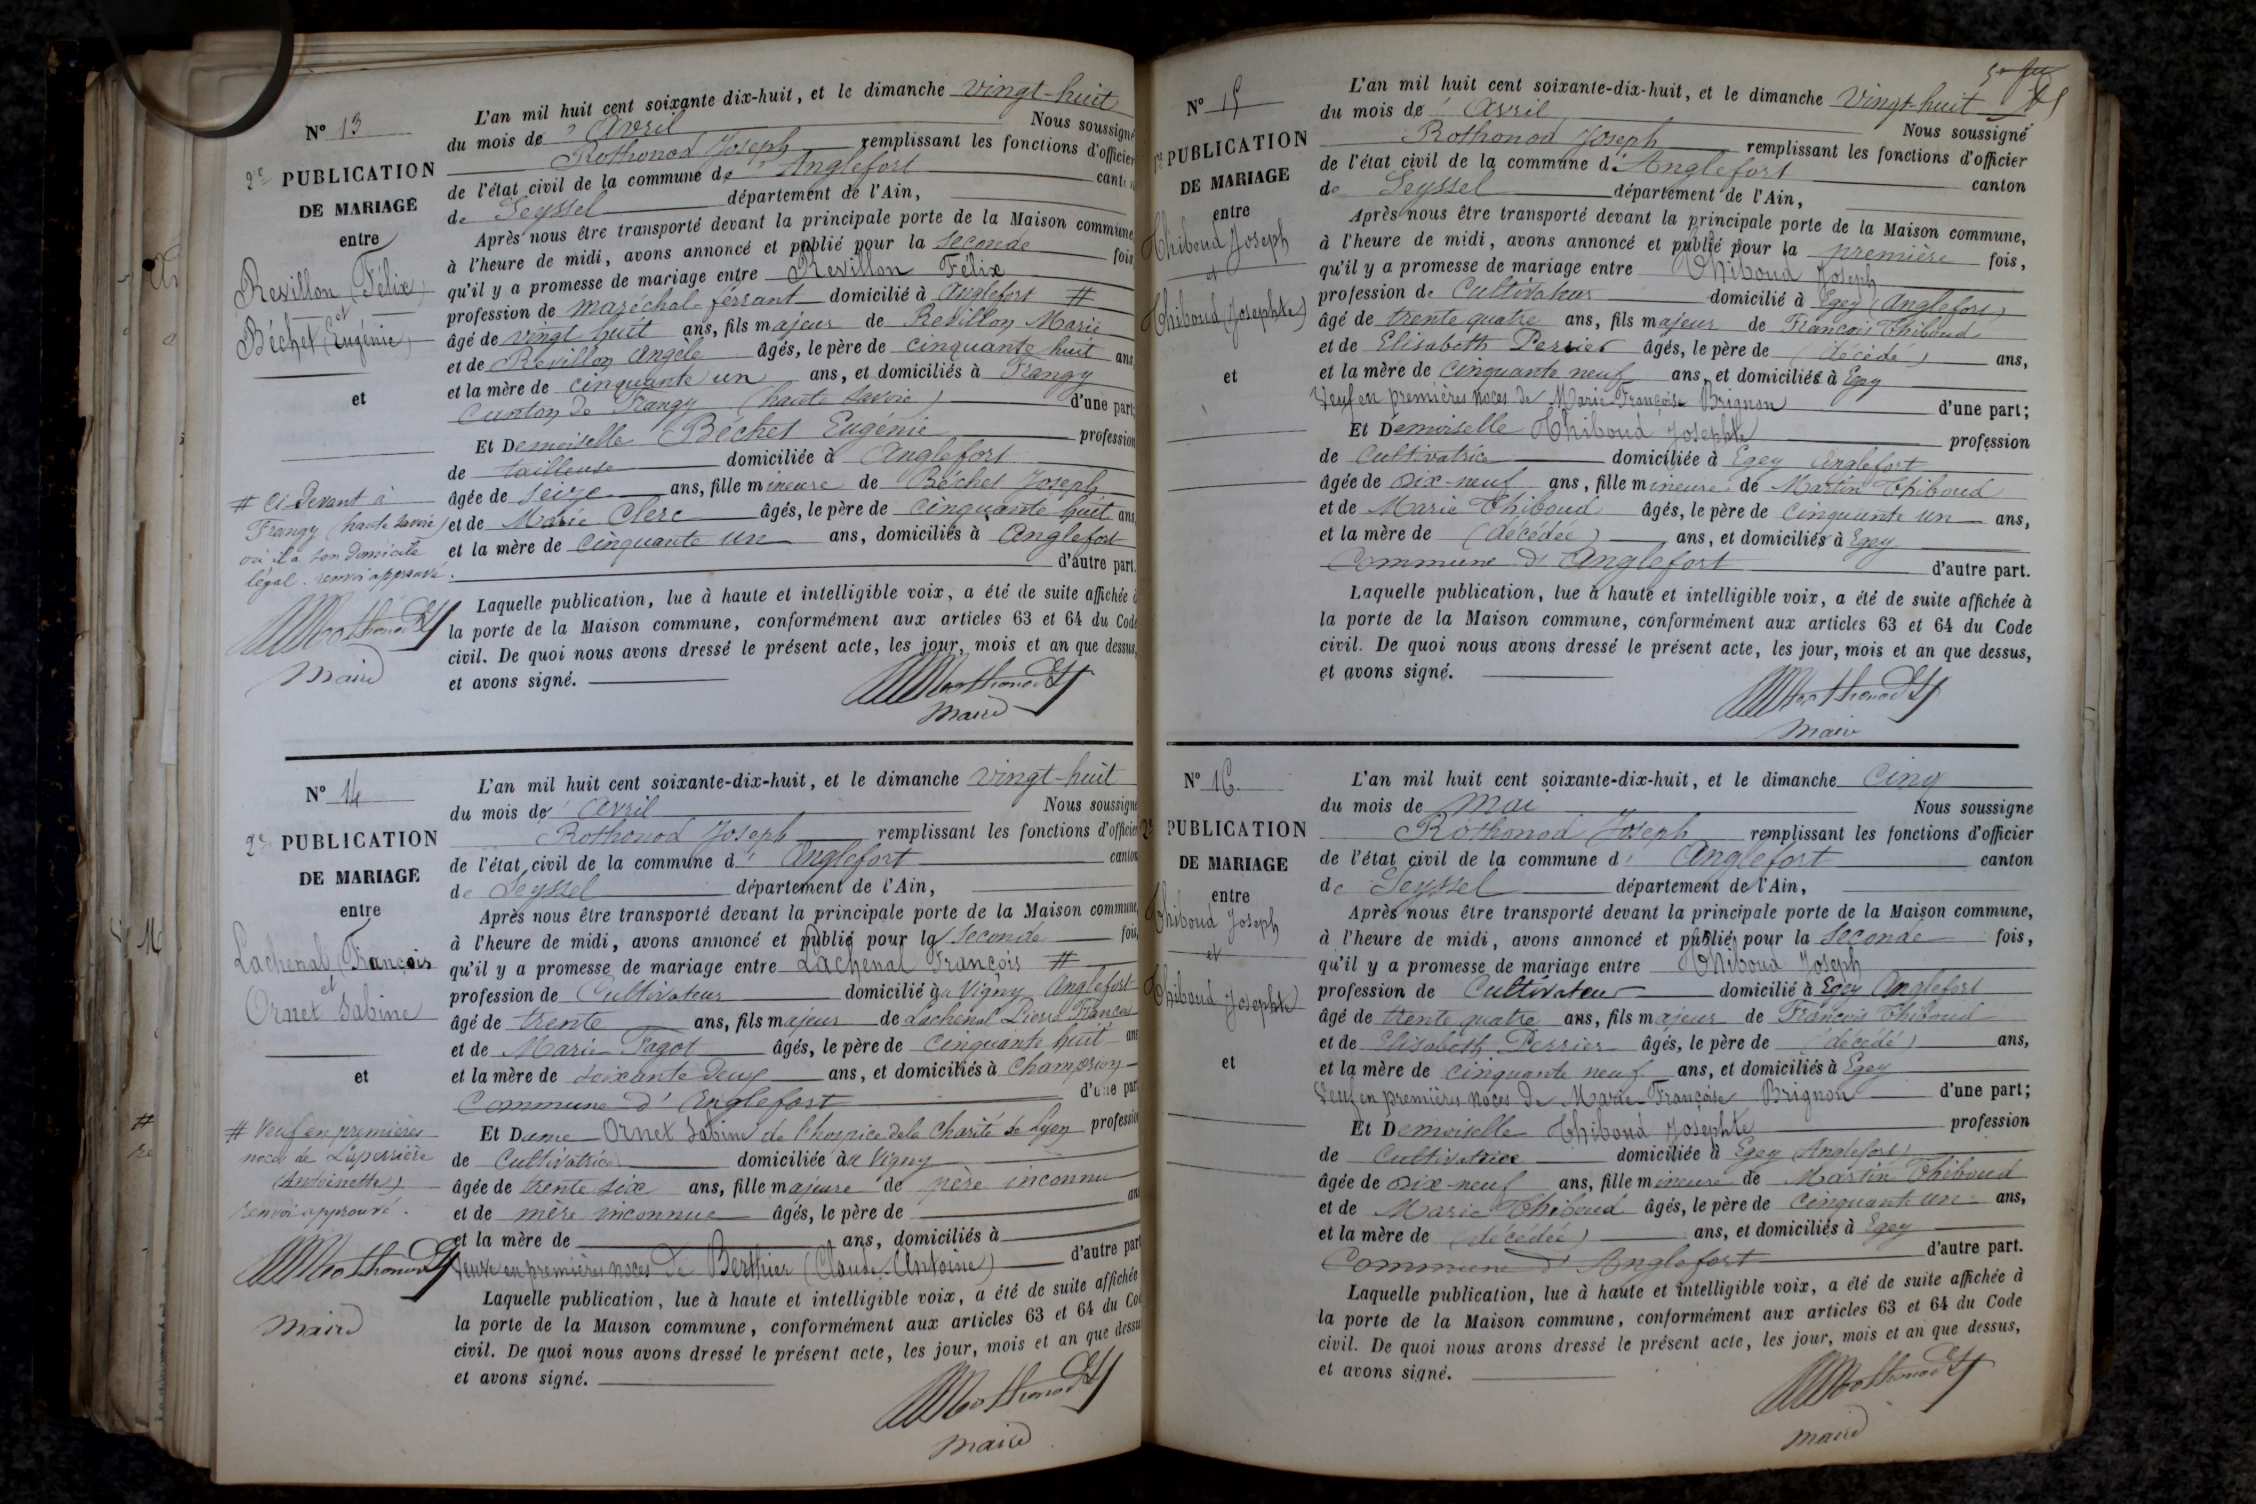 N° 13
2e PUBLICATION
DE MARIAGE
entre
Revillon (Félix)
et
Béchet (Eugénie)
et
# Ci-devant à
Frangy (haute Savoie)
où il a son domicile
légal. renvoi approuvé.
Rothonod
Maire
L'an mil huit cent soixante dix-huit, et le dimanche vingt-huit
du mois de Avril Nous soussigné
Rothonod Joseph remplissant les fonctions d'officier
de l'état civil de la commune d' Anglefort canton
de Seyssel département de l'Ain,
Après nous être transporté devant la principale porte de la Maison commune,
à l'heure de midi, avons annoncé et publié pour la seconde fois,
qu'il y a promesse de mariage entre Revillon Félix
profession de maréchal-ferrant domicilié à Anglefort #
âgé de vingt huit ans, fils majeur de Revillon Marie
et de Revillon Angèle âgés, le père de cinquante huit ans
et la mère de cinquante un ans, et domiciliés à Frangy
Canton de Frangy (haute Savoie) d'une part;
Et Demoiselle Béchet Eugénie profession
de tailleuse domiciliée à Anglefort
âgée de seize ans, fille mineure de Béchet Joseph
et de Marie Clerc âgés, le père de cinquante huit ans
et la mère de cinquante un ans, domiciliés à Anglefort
d'autre part.
Laquelle publication, lue à haute et intelligible voix, a été de suite affichée à
la porte de la Maison commune, conformément aux articles 63 et 64 du Code
civil. De quoi nous avons dressé le présent acte, les jour, mois et an que dessus,
et avons signé.
Rothonod
Maire
N° 14
2e PUBLICATION
DE MARIAGE
entre
Lachenal (François
et
Ornet Sabine
et
# Veuf en premières
noces de Laperrière
(Antoinette)
renvoi approuvé.
Rothonod
Maire
L'an mil huit cent soixante-dix-huit, et le dimanche vingt-huit
du mois de Avril Nous soussigné
Rothonod Joseph remplissant les fonctions d'officier
de l'état civil de la commune d' Anglefort canton
de Seyssel département de l'Ain,
Après nous être transporté devant la principale porte de la Maison commune,
à l'heure de midi, avons annoncé et publié pour la seconde fois,
qu'il y a promesse de mariage entre Lachenal François #
profession de Cultivateur domicilié à Vigny Anglefort
âgé de trente ans, fils majeur de Lachenal Pierre François
et de Marie Fagot âgés, le père de cinquante huit ans
et la mère de soixante deux ans, et domiciliés à Champrion
Commune d' Anglefort d'une part
Et Dame Ornet Sabine de l'hospice de la Charité de Lyon profession
de Cultivatrice domiciliée à Vigny
âgée de trente six ans, fille majeure de père inconnu
et de mère inconnue âgés, le père de ans
et la mère de ans, domiciliés à
Veuve en premières noces de Berthier (Claude-Antoine) d'autre part
Laquelle publication, lue à haute et intelligible voix, a été de suite affichée
la porte de la Maison commune, conformément aux articles 63 et 64 du Cod
civil. De quoi nous avons dressé le présent acte, les jour, mois et an que dessu
et avons signé.
Rothonod
Maire
N° 15
1re PUBLICATION
DE MARIAGE
entre
Thiboud Joseph
et
Thiboud (Josephte)
et
L'an mil huit cent soixante-dix-huit, et le dimanche Vingt-huit
du mois de Avril Nous soussigné
Rothonod Joseph remplissant les fonctions d'officier
de l'état civil de la commune d' Anglefort canton
de Seyssel département de l'Ain,
Après nous être transporté devant la principale porte de la Maison commune,
à l'heure de midi, avons annoncé et publié pour la première fois,
qu'il y a promesse de mariage entre Thiboud Joseph
profession de Cultivateur domicilié à Egey (Anglefort)
âgé de trente quatre ans, fils majeur de François Thiboud
et de Elisabeth Perrier âgés, le père de (décédé) ans,
et la mère de cinquante neuf ans, et domiciliés à Egey
Veuf en premières noces de Marie Françoise Brignon d'une part;
Et Demoiselle Thiboud Josephte profession
de Cultivatrice domiciliée à Egey Anglefort
âgée de dix-neuf ans, fille mineure de Martin Thiboud
et de Marie Thiboud âgés, le père de cinquante un ans,
et la mère de (décédée) ans, et domiciliés à Egey
Commune d' Anglefort d'autre part.
Laquelle publication, lue à haute et intelligible voix, a été de suite affichée à
la porte de la Maison commune, conformément aux articles 63 et 64 du Code
civil. De quoi nous avons dressé le présent acte, les jour, mois et an que dessus,
et avons signé.
Rothonod
Maire
N° 16
2e PUBLICATION
DE MARIAGE
entre
Thiboud Joseph
et
Thiboud Josephte
et
L'an mil huit cent soixante-dix-huit, et le dimanche cinq
du mois de Mai Nous soussigné
Rothonod Joseph remplissant les fonctions d'officier
de l'état civil de la commune d' Anglefort canton
de Seyssel département de l'Ain,
Après nous être transporté devant la principale porte de la Maison commune,
à l'heure de midi, avons annoncé et publié pour la seconde fois,
qu'il y a promesse de mariage entre Thiboud Joseph
profession de Cultivateur domicilié à Egey Anglefort
âgé de trente quatre ans, fils majeur de François Thiboud
et de Elisabeth Perrier âgés, le père de (décédé) ans,
et la mère de cinquante neuf ans, et domiciliés à Egey
Veuf en premières noces de Marie Françoise Brignon d'une part;
Et Demoiselle Thiboud Josephte profession
de Cultivatrice domiciliée à Egey (Anglefort)
âgée de dix-neuf ans, fille mineure de Martin Thiboud
et de Marie Thiboud âgés, le père de cinquante un ans,
et la mère de (décédée) ans, et domiciliés à Egey
Commune d' Anglefort d'autre part.
Laquelle publication, lue à haute et intelligible voix, a été de suite affichée à
la porte de la Maison commune, conformément aux articles 63 et 64 du Code
civil. De quoi nous avons dressé le présent acte, les jour, mois et an que dessus,
et avons signé.
Rothonod
Maire